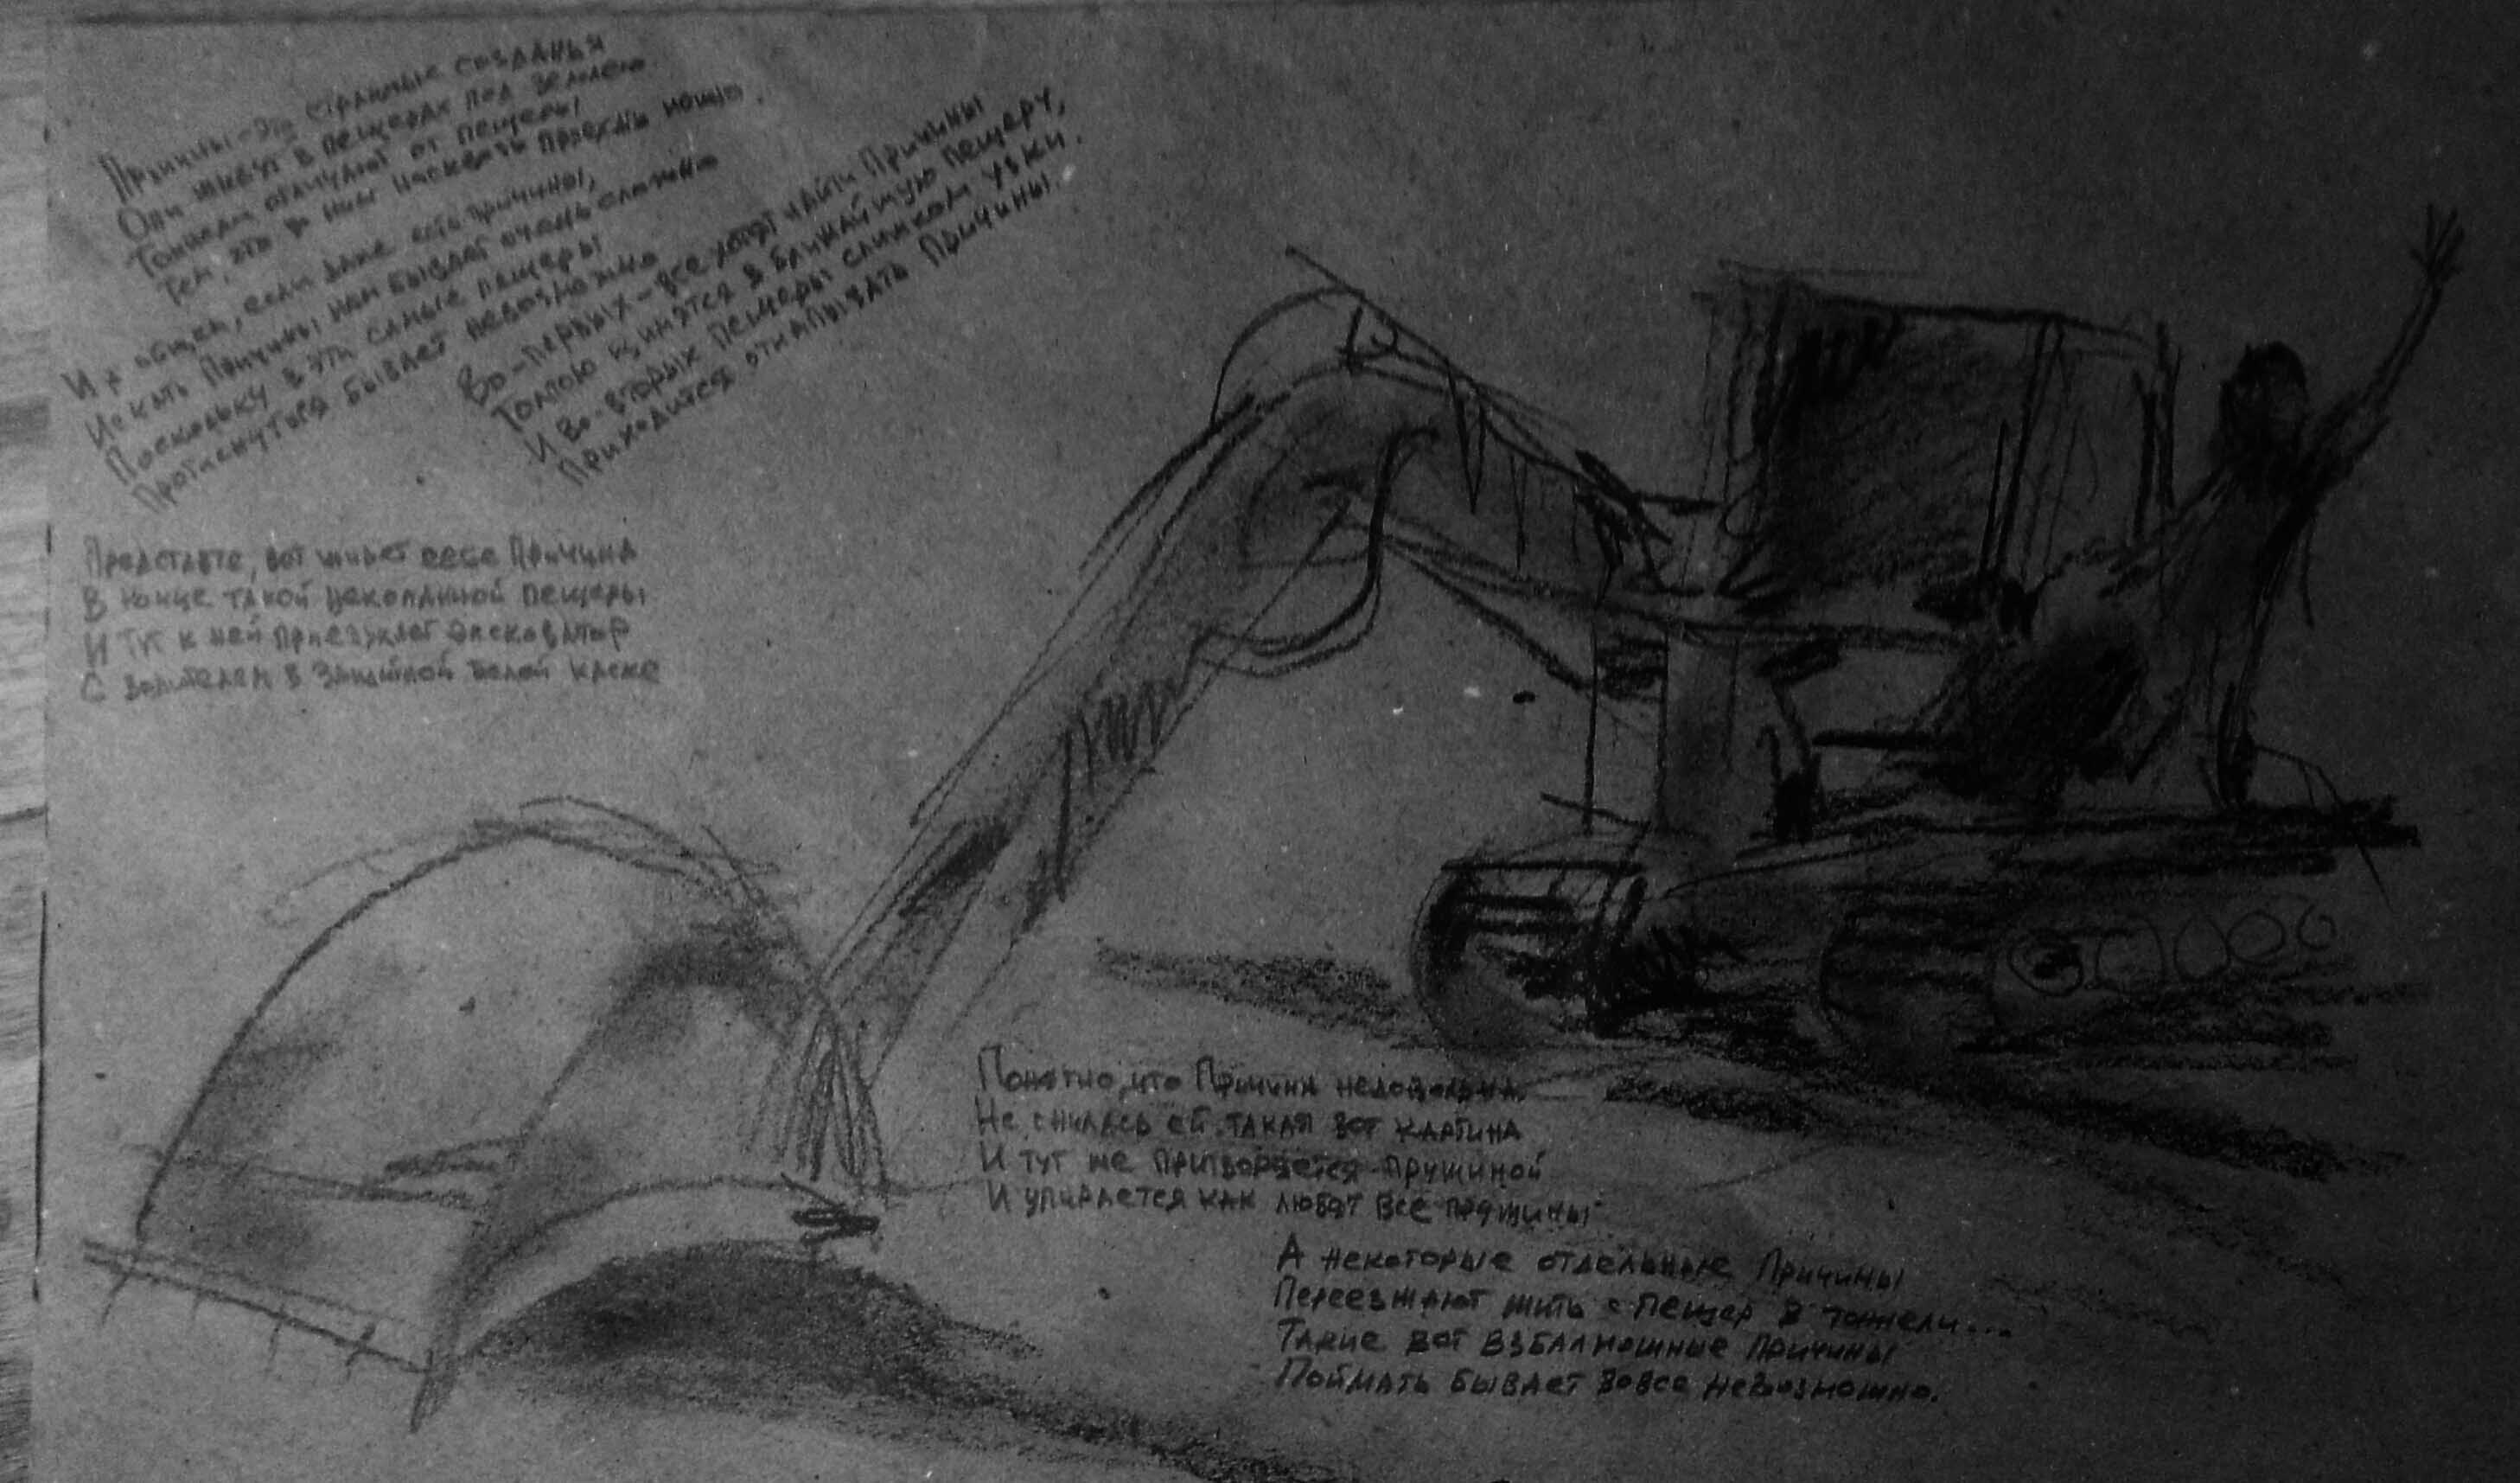 Причины - это странные созданья
Они живут в пещерах под землею
Тоннели отличают от пещеры
Тем, что в них насквозь проехать можно.
И в общем, если даже есть причины,
Искать Причины нам бывает очень сложно
Поскольку в эти самые пещеры
Протиснуться бывает невозможно
Во-первых - все хотят найти Причины
Толпою кинятся в ближайшую пещеру,
И во-вторых пещеры слишком узки.
Приходится откапывать Причины.
Представте, вот живет себе Причина
В конце такой раскопанной пещеры
И тут к ней приезжает экскаватор
С водителем в защитной белой каске
Понятно, что Причина недовольна
Не снилась ей такая вот картина
И тут же притворяется пружиной
И упирается как любят все пружины
А некоторые отдельные Причины
Переезжают жить с пещер в тоннели...
Такие вот взбалмошные Причины
Поймать бывает вовсе невозможно.